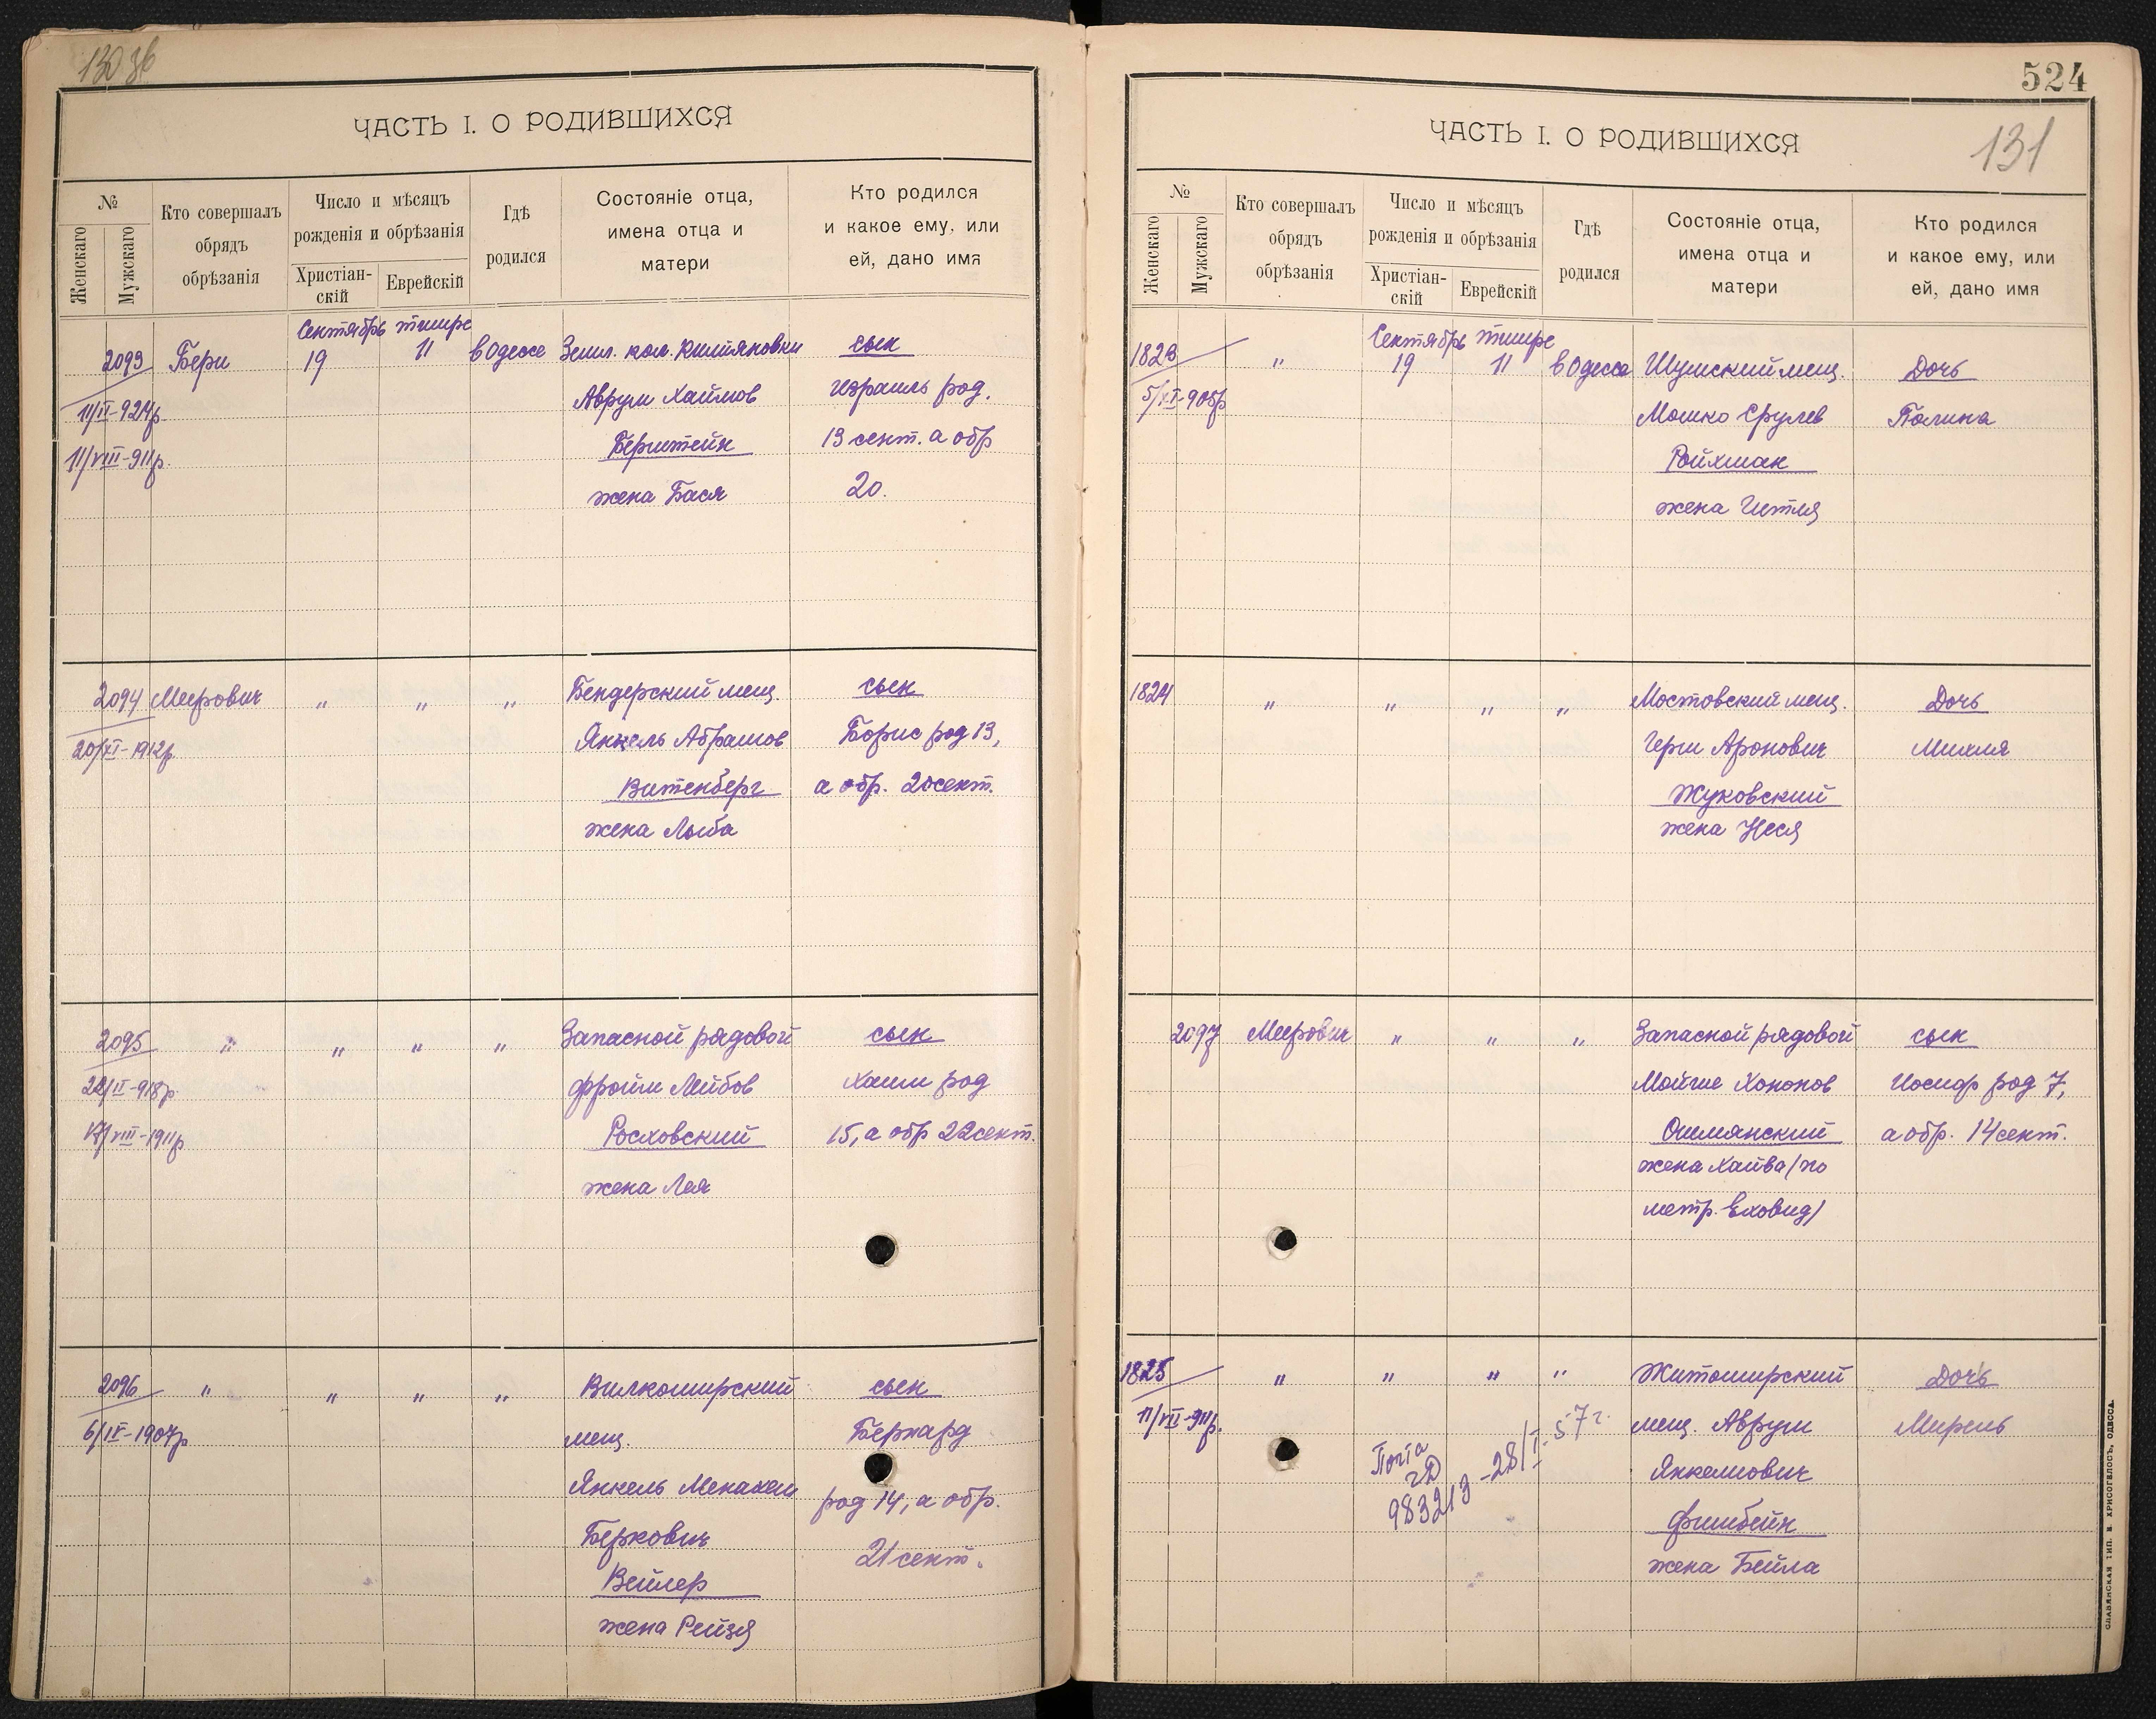 130 зв
ЧАСТЬ I. О РОДИВШИХСЯ
№
Женскаго
Мужскаго
Кто совершалъ
обрядъ
обрѣзанія
Число и мѣсяцъ
рожденія и обрѣзанія
Христіан-
скій
Еврейскій
Гдѣ
родился
Состояніе отца,
имена отца и
матери
Кто родился
и какое ему, или
ей, дано имя
Сентябрь тишре
2093 Бери 19 11 в Одессе Земл. кол. сын
11/II-924р Аврум Хаимов Израиль род.
11/VIII-911р. Бернштейн 13 сент. а обр
жена Бася 20.
2094 Меерович " " " Бендерский мещ. сын
20/XI-1912р Янкель Абрамов Борис род 13,
Витенберг а обр. 20 сент.
жена Люба
2095 " " " " Запасной рядовой сын
22/II-918р. Фроим Лейбов Хаим род
17/VIII-1911р Росховский 15, а обр 22 сент.
жена Лея
2096 " " " " Вилкомирский сын
6/IV-1907р мещ. Бернард
Янкель Менахем род 14, а обр.
Беркович 21 сент.
Вейлер
жена Рейзя
524
131
ЧАСТЬ I. О РОДИВШИХСЯ
№
Женскаго
Мужскаго
Кто совершалъ
обрядъ
обрѣзанія
Число и мѣсяцъ
рожденія и обрѣзанія
Христіан-
скій
Еврейскій
Гдѣ
родился
Состояніе отца,
имена отца и
матери
Кто родился
и какое ему, или
ей, дано имя
Сентябрь тишре
1823 " 19 11 в Одесса Шумский мещ. Дочь
5/XI-905р Мошко Срулев Полина
Ройхман
жена Гитля
1824 " " " " Мостовский мещ. Дочь
Герш Аронович Михля
Жуковский
жена Неся
2097 Меерович " " " Запасной рядовой сын
Мойше Хононов Иосиф род 7,
Ошмянский а обр. 14 сент.
жена Хайва /по
метр. Еховид/
1825 " " " " Житомирский Дочь
11/VII-911р. мещ. Аврум Мирель
Янкелиович
Фишбейн
жена Бейла
Почта
гД
983213 -28/I-57г.
СЛАВЯНСКАЯ ТИП. Н. ХРИСОГЕЛОСЪ, ОДЕССА.